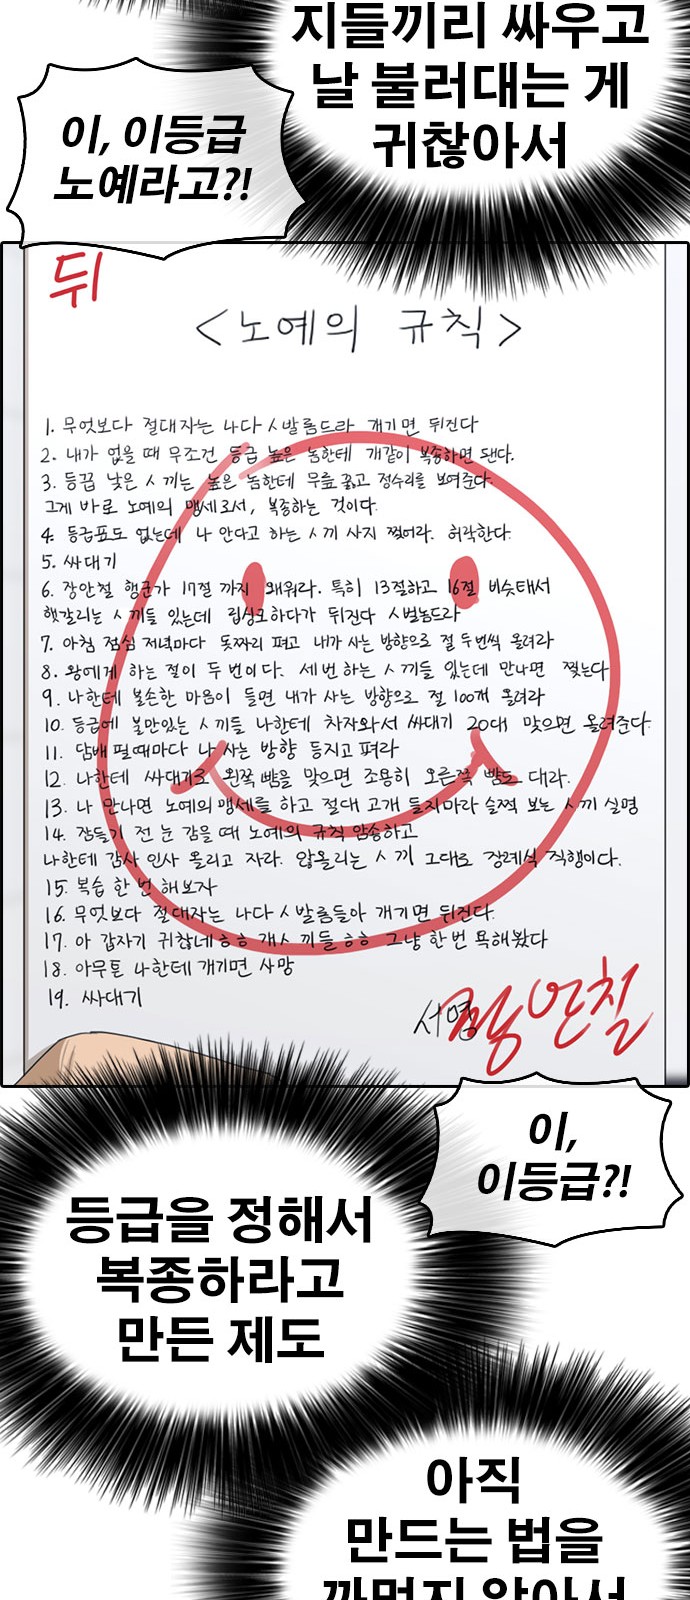 지들끼리 싸우고
날 불러대는 게
귀찮아서
이, 이등급
노예라고?!
뒤
<노예의 규칙>
1. 무엇보다 절대자는 나다 ㅅ발롬드라 개기면 뒤진다
2. 내가 없을 때 무조건 등급 높은 놈한테 개같이 복종하면 됀다.
3. 등끕 낮은 ㅅ끼는 높은 놈한테 무릎 꿇고 정수리를 보여준다.
그게 바로 노예의 맹세로서, 복종하는 것이다.
4. 등급표도 없는데 나 안다고 하는 ㅅ끼 사지 찢어라. 허락한다.
5. 싸대기
6. 장안철 행군가 17절 까지 왜워라. 특히 13절하고 16절 비슷태서
햇갈리는 ㅅ끼들 있는데 립싱크하다가 뒤진다 ㅅ벌놈드라
7. 아침 점심 저녁마다 돗짜리 펴고 내가 사는 방향으로 절 두번씩 올려라
8. 왕에게 하는 절이 두 번이다. 세 번 하는 ㅅ끼들 있는데 만나면 찢는다
9. 나한테 불손한 마음이 들면 내가 사는 방향으로 절 100개 올려라
10. 등급에 불만있는 ㅅ끼들 나한테 차자와서 싸대기 20대 맞으면 올려준다.
11. 담배 필때마다 나 사는 방향 등지고 펴라
12. 나한테 싸대기로 왼쪽 뺨을 맞으면 조용히 오른쪽 뺨도 대라.
13. 나 만나면 노예의 맹세를 하고 절대 고개 들지마라 슬쩍 보는 ㅅ끼 실명
14. 잠들기 전 눈 감을 때 노예의 규칙 암송하고
나한테 감사 인사 올리고 자라. 않올리는 ㅅ끼 그대로 장례식 직행이다.
15. 복습 한 번 해보자
16. 무엇보다 절대자는 나다 ㅅ발롬들아 개기면 뒤진다.
17. 아 갑자기 귀찮네ㅎㅎ 개ㅅ끼들 ㅎㅎ 그냥 한번 욕해봤다
18. 아무튼 나한테 개기면 사망
19. 싸대기
서명 장안철
이,
이등급?!
등급을 정해서
복종하라고
만든 제도
아직
만드는 법을
까먹지 않아서